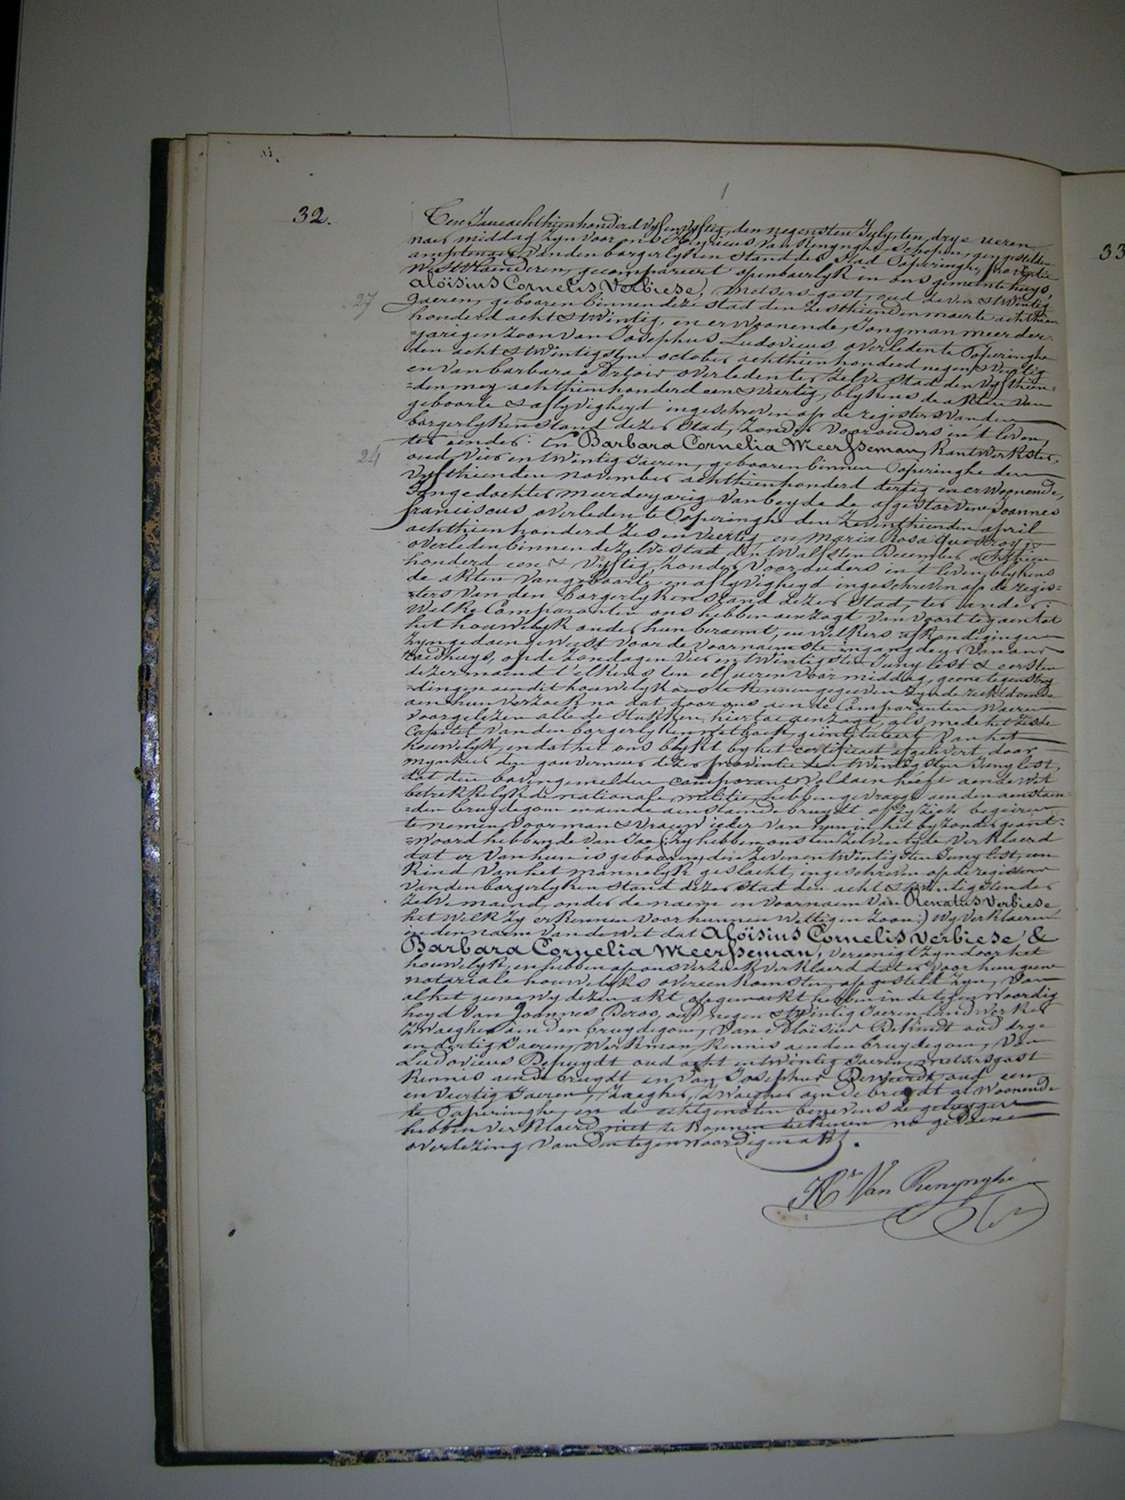 32.
Ten Jare achthien honderd vyf en vyftig, den negensten July, ten drye ueren
naer middag zyn voor ons Henricus Van Renynghe, Schepen, gedelegueerden
amptenaer van den borgerlyken Stand der Stad Poperinghe, provintie
WestVlaenderen, gecompareert openbaerlyk in ons gemeentehuys,
Aloïsius Cornelis Verbiese, metsers gast, oud zeven & twintig
27
Jaeren, gebooren binnen deze Stad den zesthienden maerte achthien
honderd acht & twintig, en er woonende, Jongman meerder-
=jarigen zoon van Josephus Ludovicus overleden te Poperinghe
den acht & twintigsten october achthien honderd negen & veertig
en van barbara overleden ter zelve Stad den vyfthien=
=den mey achthien honderd een & veertig, blykens de akten van
geboorte & aflyvigheyd ingeschreven op de registers van den
borgerlyken stand dezer Stad, zonder voorouders in 't leven,
ter eender: En Barbara Cornelia Meersseman, kantwerkster,
24
oud vier en twintig Jaeren, gebooren binnen Poperinghe den
vyfthienden November achthien honderd dertig en er woonende,
Jongedochter meerderjarig van beyde de afgestorvene Joannes
franciscus overleden te Poperinghe den zeventhienden april
achthien honderd zes en veertig, en Maria Rosa Quaghebeur
overleden binnen dezelve Stad den twalfsten December achthien
honderd een & vyftig, zonder voorouders in 't leven, blykens
de akten van geboorte en aflyvigheyd ingeschreven op de regis=
=ters van den borgerlyken stand dezer Stad, ter ander:
Welke Comparanten ons hebben aenzogt van voort te gaen tot
het houwelyk onder hun beraemt, en welkers afkondigingen
zyn gedaen geweest voor de voornaemste ingang deur van ons
raedhuys, op de zondagen vier en twintigsten Juny lest & eersten
dezer maend t'elkens ten elf ueren voor middag, geene tegenstry
=dingen aen dit houwelyk ons te kennen gegeven zynde recht doende
aen hun verzoek na dat door ons aen de Comparanten waeren
voorgelezen alle de stukken, hier toe aenzogt, als mede het zesde
Capittel van den borgerlyken wetboek, geintituleert van het
houwelyk, en dat het ons blykt by het certificaet afgelevert door
mynheer den gouverneur dezer provintie den twintigsten Juny lest,
dat den bovengemelden comparant voldaen heeft aen de wet
betrekkelyk de nationale militie, hebben gevraegd aen den aenstaen=
=den bruydegom en aen de aenstaende bruydt of zy zich begeiren
te nemen voor man & vrouw ieder van hun in het byzonder geant=
=woord hebbende van Jaa; (Zy hebben ons ten zelven tyde verklaerd
dat er van hun is gebooren den zeven en twintigsten Juny lest, een
kind van het mannelyk geslacht, ingeschreven op de registers
van den borgerlyken stand dezer Stad den acht & twintigsten der
zelve maend, onder de naem en voornaem van Renatus Verbiese
het welk zy erkennen voor hunnen wettigen zoon:) Wy verklaeren
in den naem van de wet dat Aloïsius Cornelis Verbiese &
Barbara Cornelia Meersseman, vereenigt zyn door het
houwelyk, en hebben op ons verzoek verklaerd dat er voor hun geen
notariale houwelyks overeenkomsten opgesteld zyn, Van
al het gene wy dezen akt opgemaekt hebben in de tegenwoordig
heyd van Joannes Deroo, oud negen & twintig Jaeren, landwerker
Zwaeger aen den bruydegom, Van Aloïsius oud drye
en dertig Jaeren, Werkman, kennis aen den bruydegom, Van
Ludovicus oud acht en twintig Jaeren, metsersgast
kennis aen de bruydt en van Josephus oud een
en veertig Jaeren, Zaegher, Zwaeger aen de bruydt al woonende
te Poperinghe, en de echtgenoten benevens de getuygen
hebben verklaerd niet te konnen teekenen na gedaene
overlezing van den tegenwoordigen akt.
Hri Van Renynghe
33